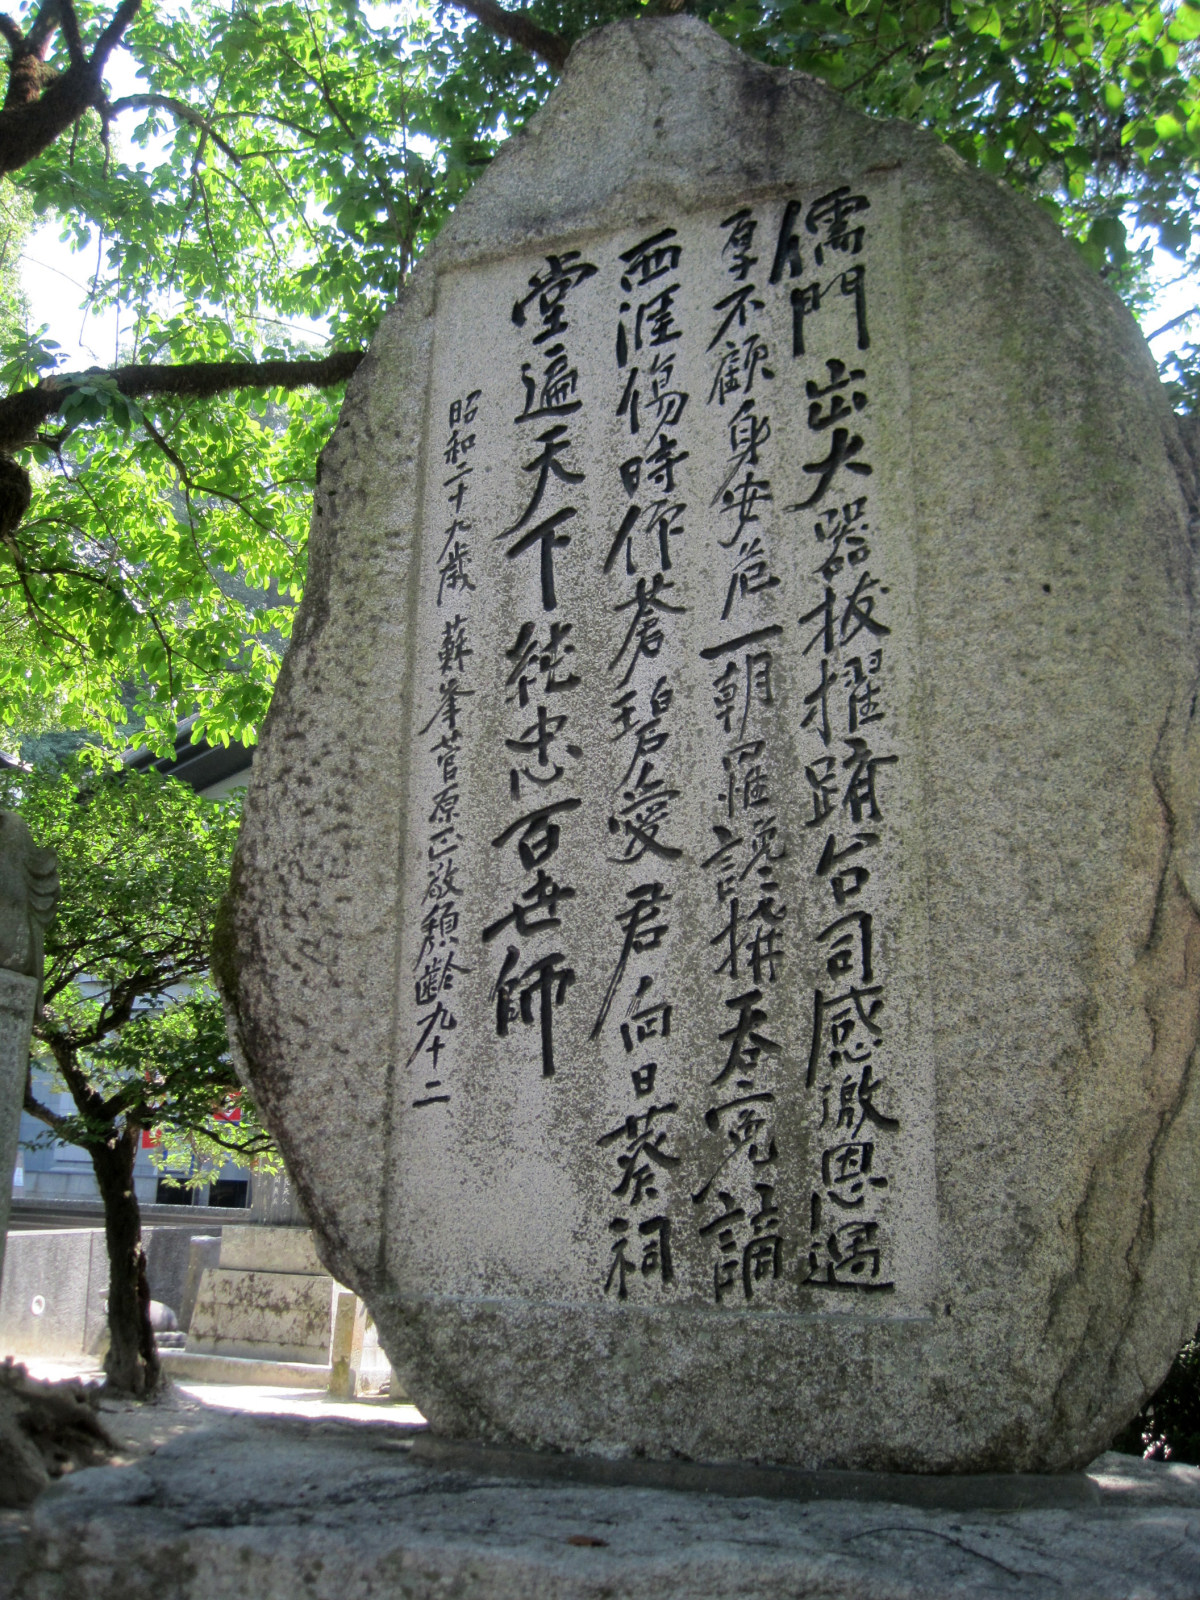 儒門出大器抜擢躋台司感激恩遇
厚不顧身安危一朝罹讒搆呑寃謫
西涯傷時作蒼碧愛君向日葵祠
堂遍天下純忠百世師
昭和二十九歳 蘇峯菅原正敬頽齢九十二